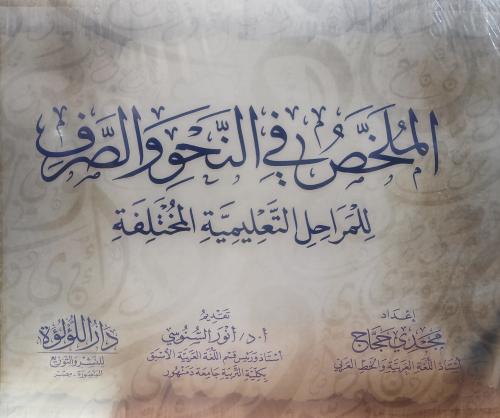 المُلَخَّصُ فِي النَّحْوِ وَالصَّرْفِ
لِلْمَرَاحِلِ التَّعْلِيمِيَّةِ المُخْتَلِفَةِ
إعداد
مجدي حجاج
أستاذ اللغة العربية والخط العربي
تقديم
أ.د/ أنور السنوسي
أستاذ ورئيس قسم اللغة العربية الأسبق
بكلية التربية جامعة دمنهور
دار اللؤلؤة
للنشر والتوزيع
المنصورة - مصر